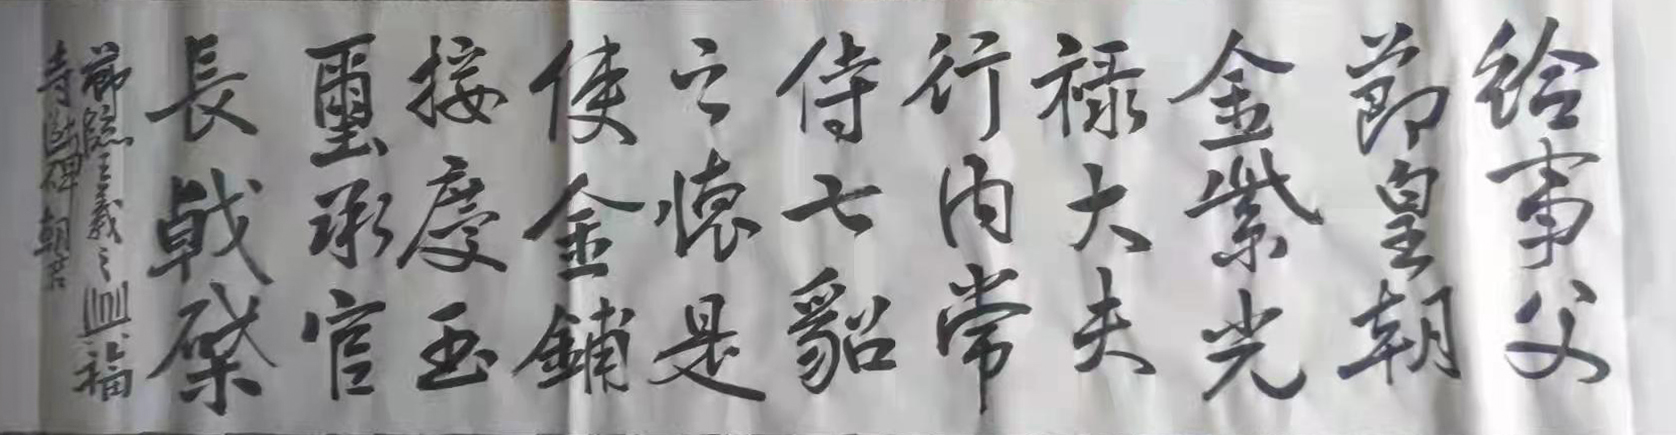 給事父
節皇朝
金紫光
禄大夫
行内常
侍七貂
之懷是
使金鋪
接慶玉
璽承官
長戟棨
節臨王羲之興福
寺斷碑 朝君